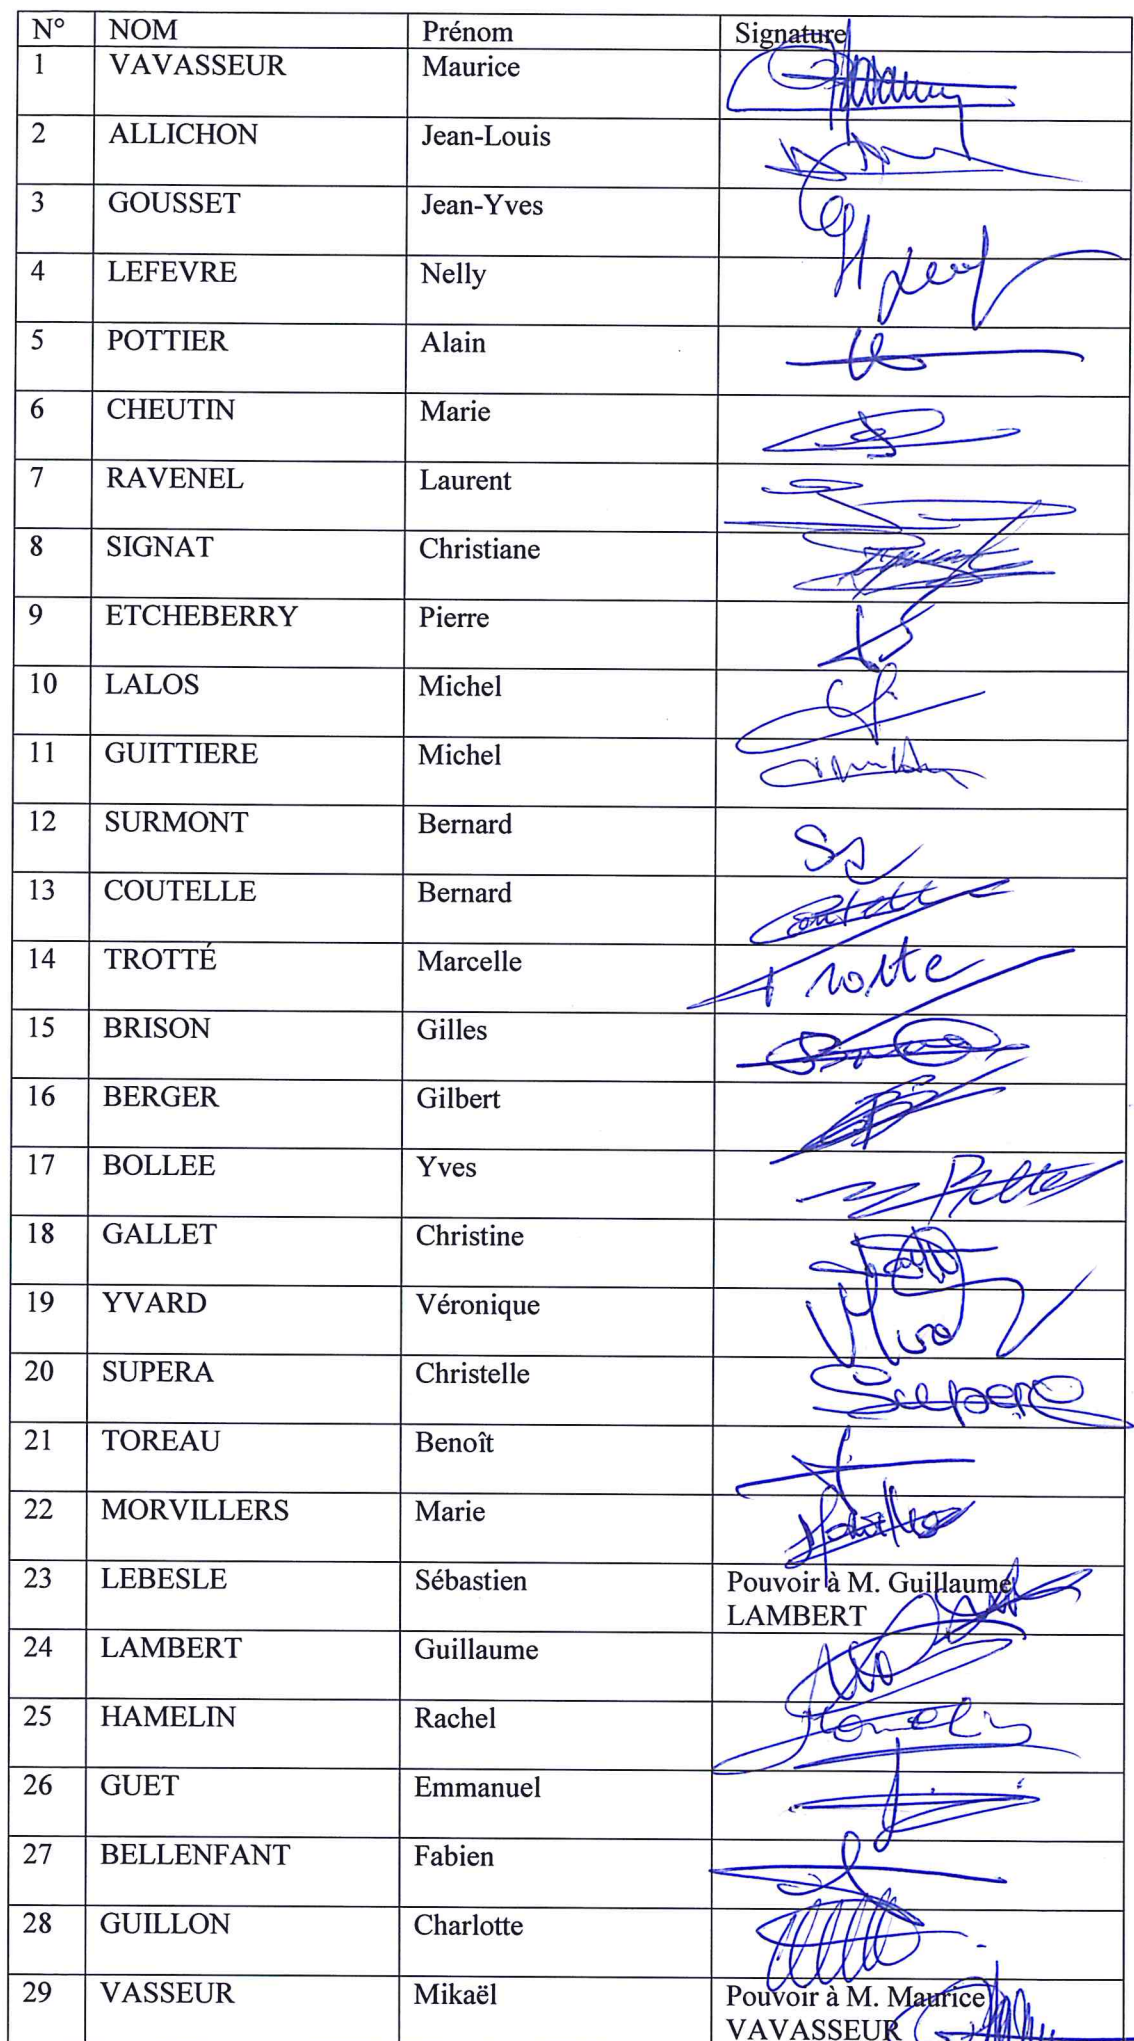 N° NOM Prénom Signature
1 VAVASSEUR Maurice
2 ALLICHON Jean-Louis
3 GOUSSET Jean-Yves
4 LEFEVRE Nelly
5 POTTIER Alain
6 CHEUTIN Marie
7 RAVENEL Laurent
8 SIGNAT Christiane
9 ETCHEBERRY Pierre
10 LALOS Michel
11 GUITTIERE Michel
12 SURMONT Bernard
13 COUTELLE Bernard
14 TROTTÉ Marcelle Trotte
15 BRISON Gilles
16 BERGER Gilbert
17 BOLLEE Yves
18 GALLET Christine
19 YVARD Véronique
20 SUPERA Christelle Supera
21 TOREAU Benoît
22 MORVILLERS Marie
23 LEBESLE Sébastien Pouvoir à M. Guillaume
LAMBERT
24 LAMBERT Guillaume
25 HAMELIN Rachel Hamelin
26 GUET Emmanuel
27 BELLENFANT Fabien
28 GUILLON Charlotte
29 VASSEUR Mikaël Pouvoir à M. Maurice
VAVASSEUR